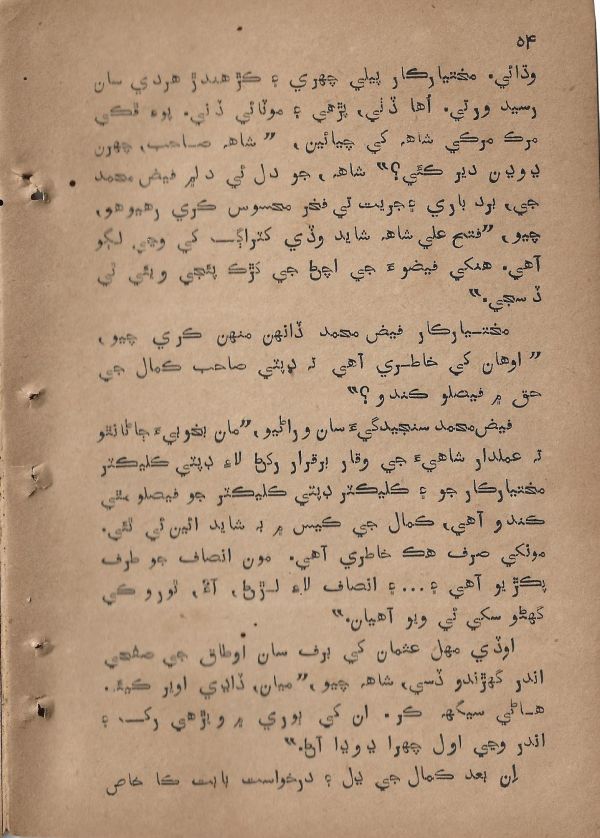 ۵۴
وڌائي. مختيارڪار پيلي چهري ۽ ڪڙهندڙ هردي سان
رسيد ورتي. اُها ڏٺي، پڙهي ۽ موٽائي ڏني. پوءِ ڦڪي
مرڪ مرڪي شاهه کي چيائين، ”شاهه صاحب، چهرن
ڍوڍن دير ڪئي؟“ شاهه، جو دل ئي دل ۾ فيض محمد
جي، برد باري ۽ جريت تي فخر محسوس ڪري رهيو هو،
چيو، ”فتح علي شاهه شايد وڏي کٽراڳ کي وڃي لڳو
آهي. هنکي فيضوءَ جي اچڻ جي کڙڪ پئجي ويئي ٿي
ڏسجي.“
مختيارڪار فيض محمد ڏانهن منهن ڪري چيو،
”اوهان کي خاطري آهي ته ڊپٽي صاحب ڪمال جي
حق ۾ فيصلو ڪندو؟“
فيض محمد سنجيدگيءَ سان وراڻيو، ”مان بخوبيءَ ڄاڻانٿو
ته عملدار شاهيءَ جي وقار برقرار رکڻ لاءِ ڊپٽي ڪليڪٽر
مختيارڪار جو ۽ ڪليڪٽر ڊپٽي ڪليڪٽر جو فيصلو مڃي
ڪندو آهي، ڪمال جي ڪيس ۾ به شايد ائين ئي ٿئي.
مونکي صرف هڪ خاطري آهي. مون انصاف جو طرف
پڪڙيو آهي ۽... ۽ انصاف لاءِ لـڙڻ، آءٌ، ٿورو کي
گهڻو سکي ئي ويو آهيان.“
اوڏي مهل عثمان کي برف سان اوطاق جي صفحي
اندر گهڙندو ڏسي، شاهه چيو، ”ميان، ڏاڍي اوير ڪيئه.
هـاڻي سيگهه ڪر. ان کي ٻوري ۾ ويڙهي رک، ۽
اندر وڃي اول چهرا ڍوڍا آڻ.“
اِن بعد ڪمال جي ڍل ۽ درخواست بابت ڪا خاص